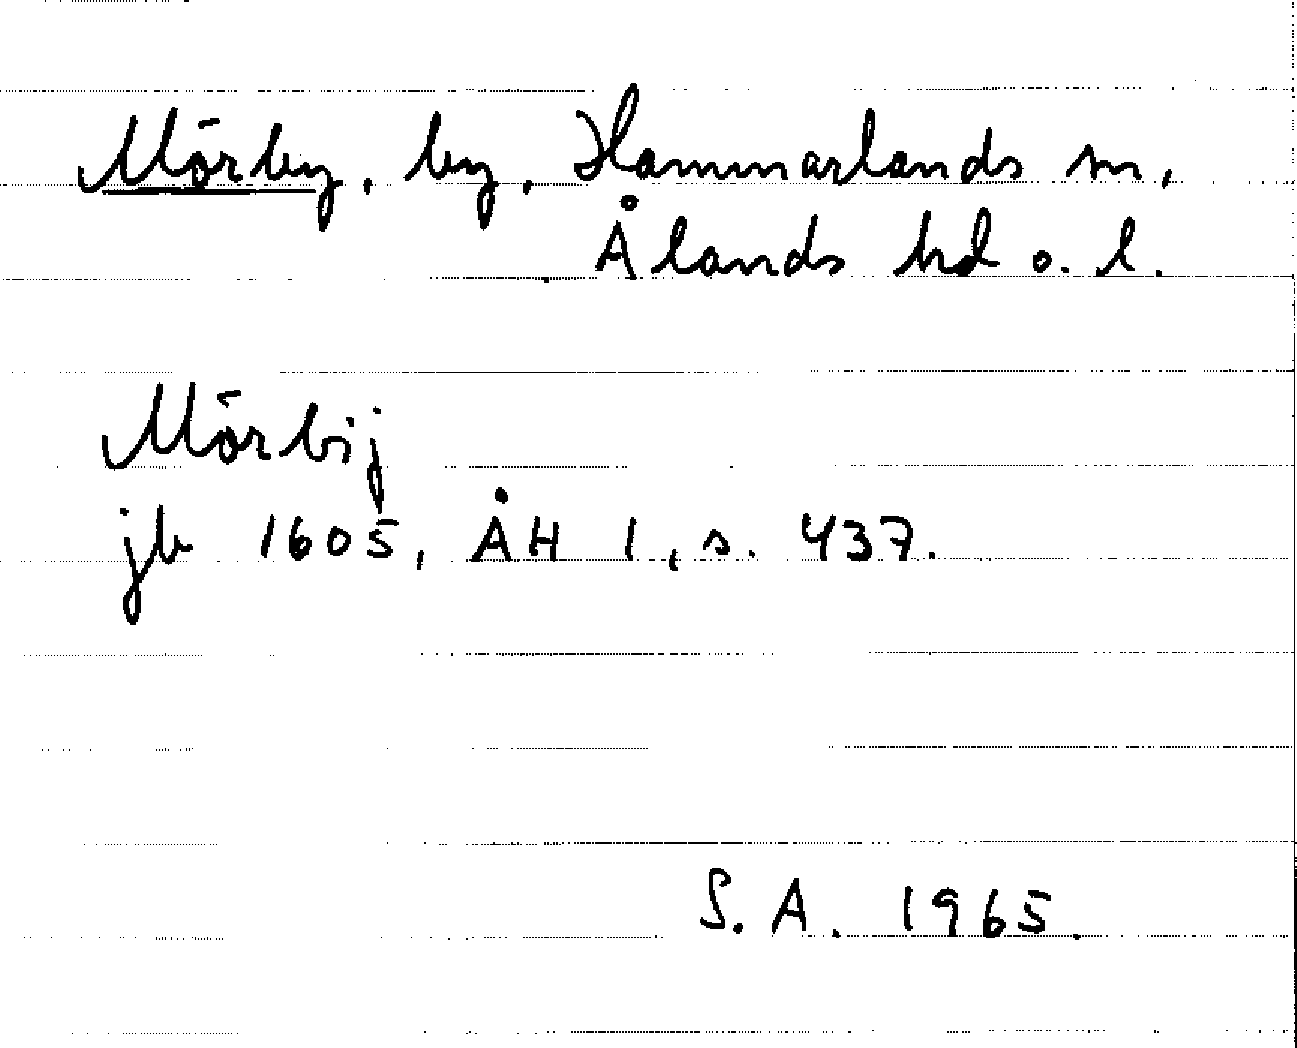 Mörby, by, Hammarlands sn,
Ålands hd o. l.
Mörbij
jb 1605, ÅH 1, s. 437.
S. A. 1965.